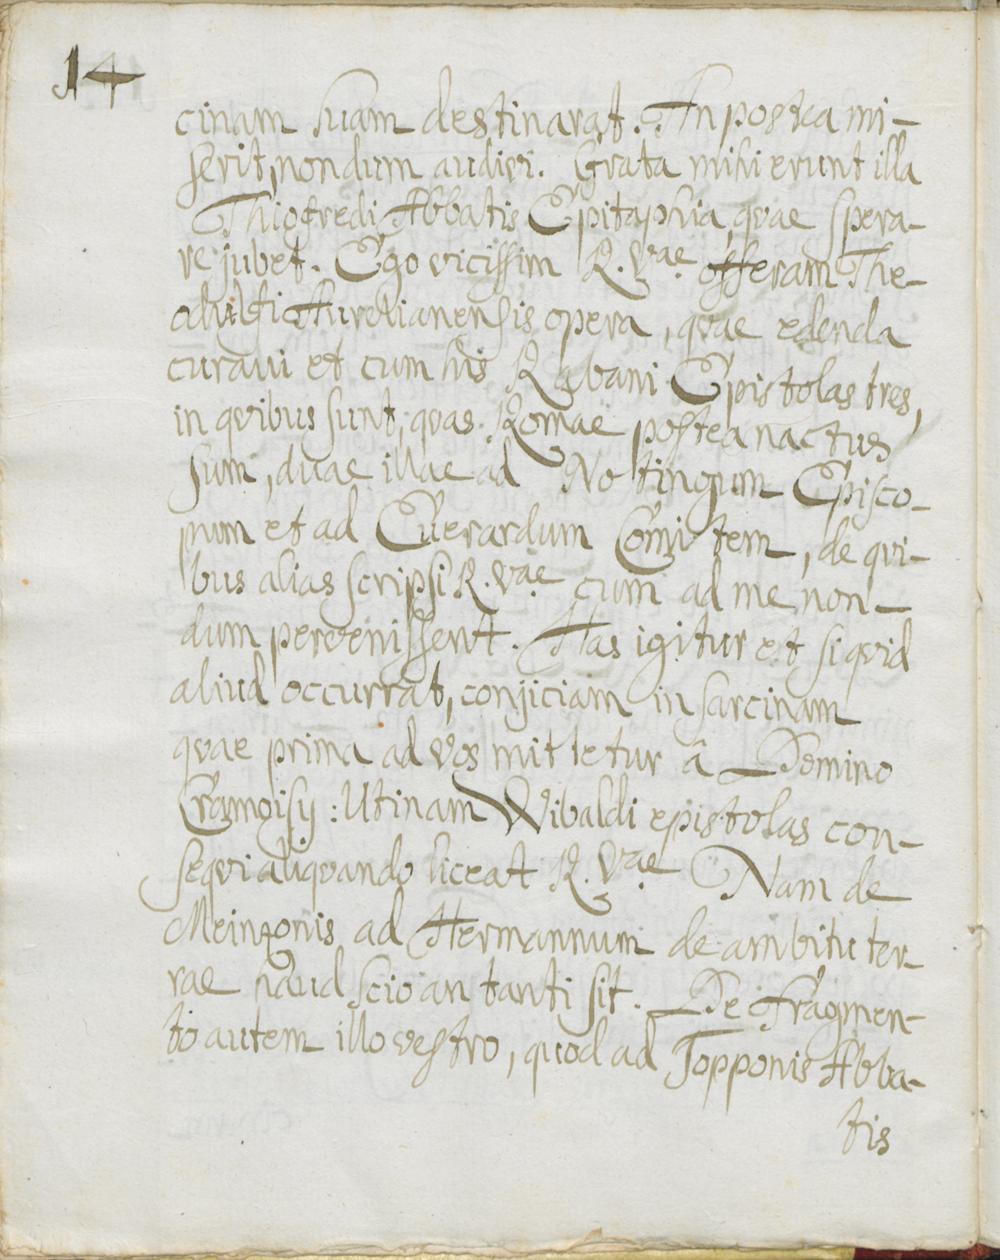 14
cinam suam destinarat. An postea mi-
serit, nondum audivi. Grata mihi erunt illa
Thiofredi Abbatis Epitaphia, quae spera-
re jubet. Ego vicissim R. Vae offeram The-
odulfi Aurelianensis opera, quae edenda
curavi et cum his Rabani Epistolas tres,
in quibus sunt, quas Romae postea nactus
sum, duae illae ad Notingum Episco-
pum et ad Everardum Comitem, de qui-
bus alias scripsi R. Vae cum ad me non-
dum pervenissent. Has igitur et si quid
aliud occurrat, conjiciam in sarcinam
quae prima ad vos mittetur â Domino
Cramoisy: Utinam Wibaldi epistolas con-
sequi aliquando liceat R. Vae Nam de
Meinzonis ad Hermannum de ambitu ter-
rae haud scio an tanti sit. De fragmen-
to autem illo vestro, quod ad Popponis Abba-
tis